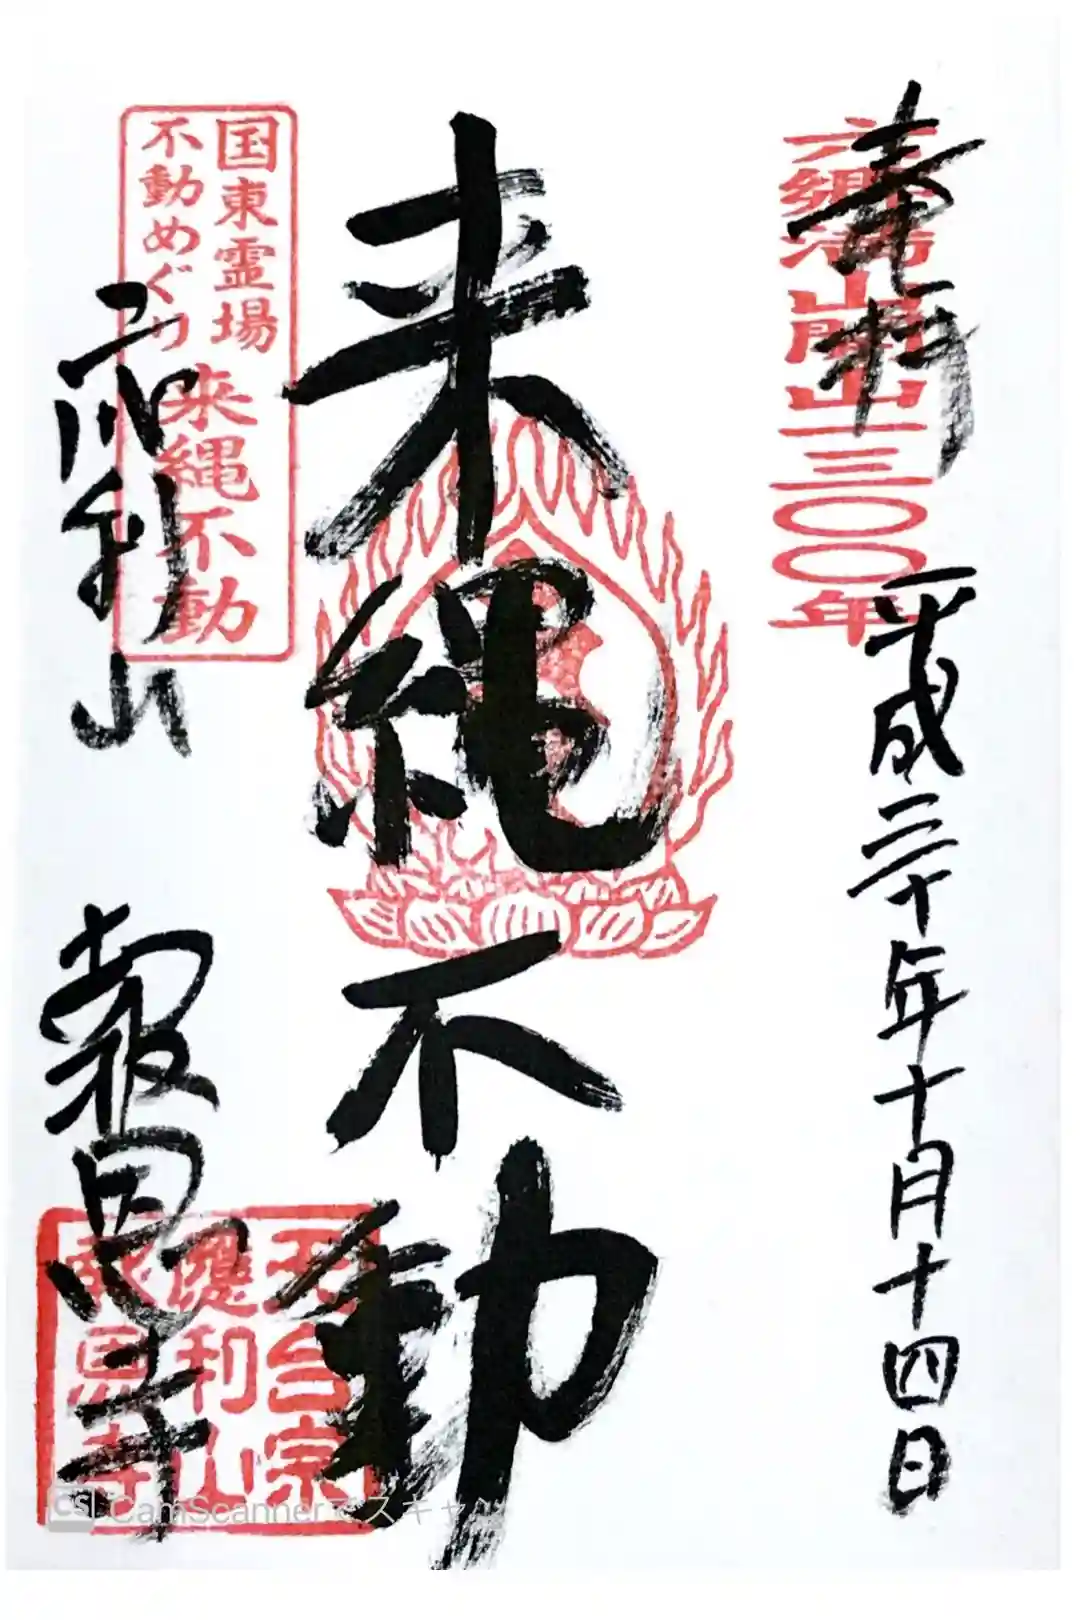 奉拝
六郷満山開山一三〇〇年
平成三十年十月十四日
来縄不動
国東霊場
不動めぐり
来縄不動
応利山
報恩寺
天台宗
應利山
報恩寺
CS CamScannerでスキャ